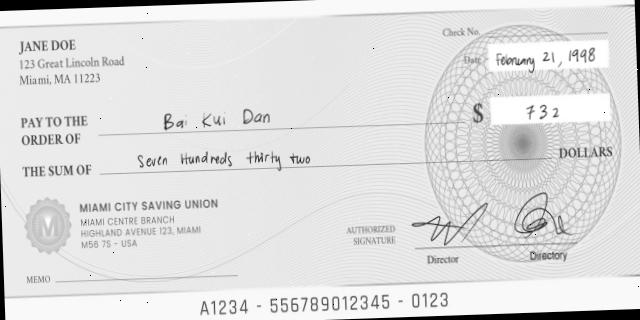 JANE DOE
123 Great Lincoln Road
Miami, MA 11223
Check No.
Date February 21, 1998
PAY TO THE
ORDER OF Bai Kui Dan
$ 732
THE SUM OF Seven Hundreds thirty two DOLLARS
M
MIAMI CITY SAVING UNION
MIAMI CENTRE BRANCH
HIGHLAND AVENUE 123, MIAMI
M56 7S - USA
AUTHORIZED
SIGNATURE
Director
Directory
MEMO
A1234 - 556789012345 - 0123